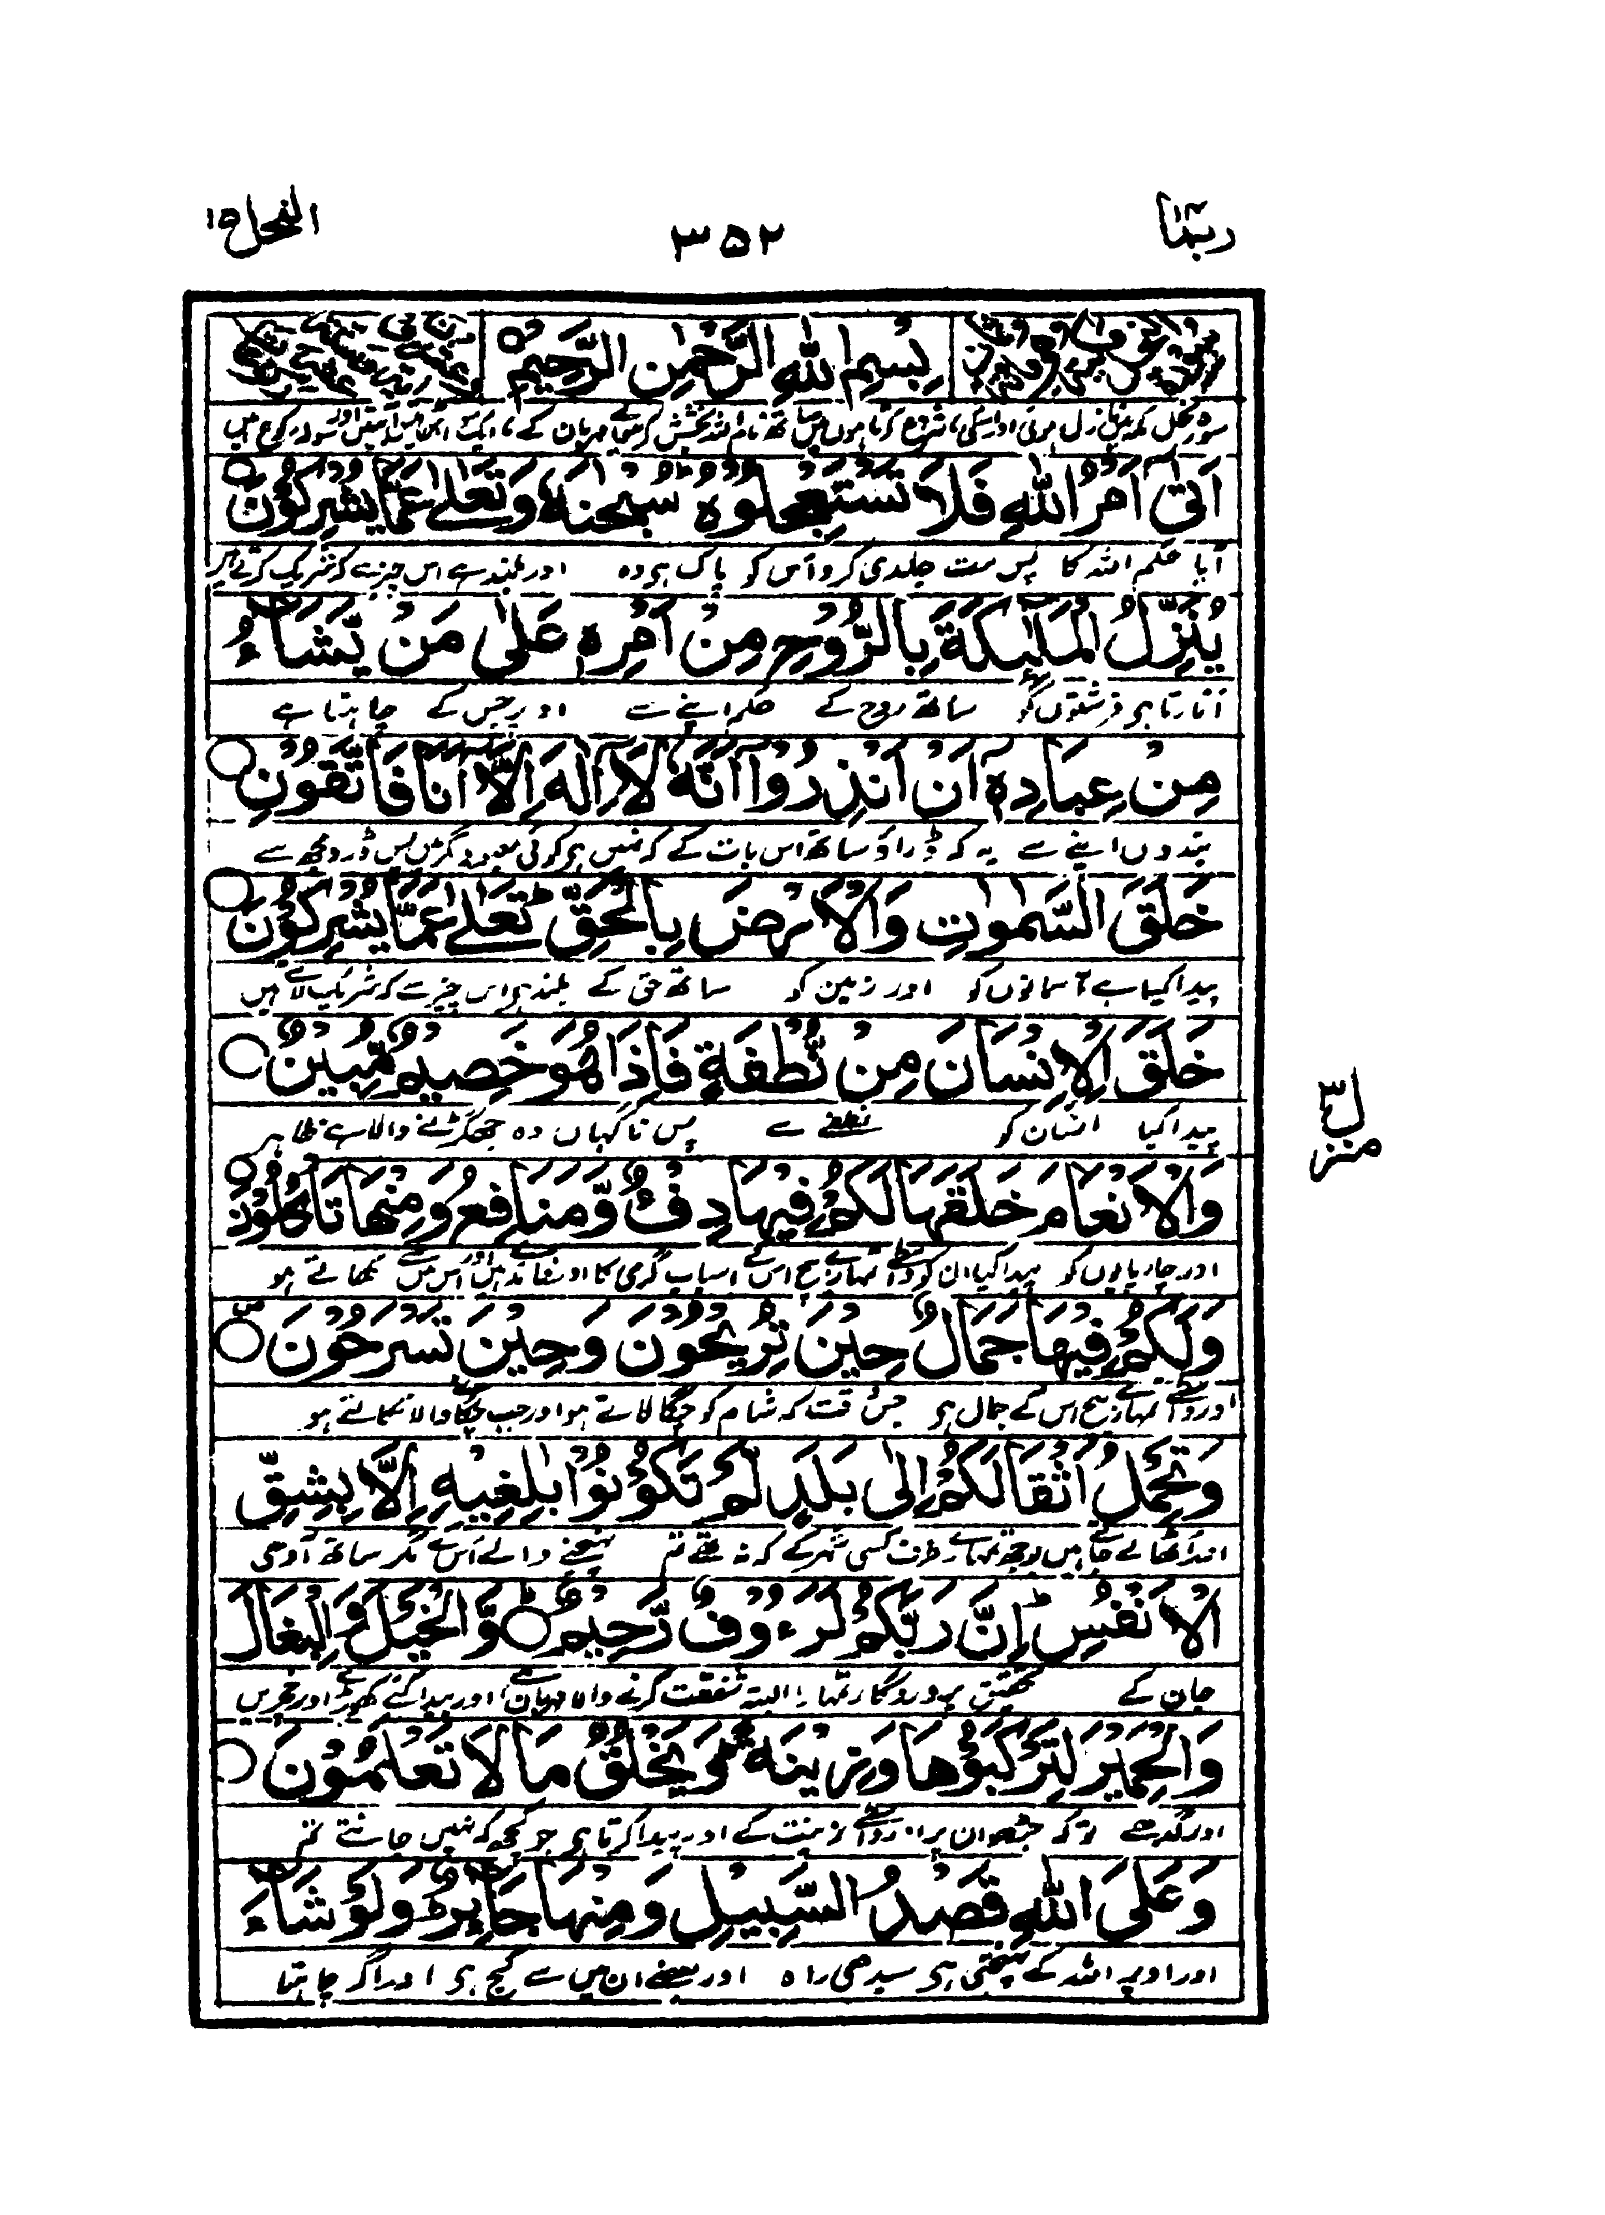 ربما
۳۵۲
النحل ۱۵
بِسْمِ اللهِ الرَّحْمٰنِ الرَّحِيْمِ
اَتٰى اَمْرُ اللهِ فَلَا تَسْتَعْجِلُوْهُ سُبْحٰنَهٗ وَتَعٰلٰى عَمَّا يُشْرِكُوْنَ
آیا حکم اللہ کا پس مت جلدی کرو اس کو پاک ہی وہ اور بلند ہے اس چیز سے کہ شریک کرتے ہیں
يُنَزِّلُ الْمَلٰٓئِكَةَ بِالرُّوْحِ مِنْ اَمْرِهٖ عَلٰى مَنْ يَّشَآءُ
اتارتا ہی فرشتوں کو ساتھ روح کے حکم اپنے سے اوپر جس کے چاہتا ہے
مِنْ عِبَادِهٖٓ اَنْ اَنْذِرُوْٓا اَنَّهٗ لَآ اِلٰهَ اِلَّآ اَنَا فَاتَّقُوْنِ
بندوں اپنے سے یہ کہ ڈراؤ ساتھ اس بات کے کہ نہیں ہی کوئی معبود مگر میں پس ڈرو مجھ سے
خَلَقَ السَّمٰوٰتِ وَالْاَرْضَ بِالْحَقِّ ؕ تَعٰلٰى عَمَّا يُشْرِكُوْنَ
پیدا کیا ہے آسمانوں کو اور زمین کو ساتھ حق کے بلند ہی اس چیز سے کہ شریک لاتے ہیں
خَلَقَ الْاِنْسَانَ مِنْ نُّطْفَةٍ فَاِذَا هُوَ خَصِيْمٌ مُّبِيْنٌ
پیدا کیا انسان کو نطفے سے پس ناگہاں وہ جھگڑنے والا ہے ظاہر
وَالْاَنْعَامَ خَلَقَهَا لَكُمْ فِيْهَا دِفْءٌ وَّمَنَافِعُ وَمِنْهَا تَاْكُلُوْنَ
اور چارپایوں کو پیدا کیا ان کو واسطے تمہارے بیچ اس کے اسباب گرمی کا اور فائدے ہیں اور اس میں سے کھاتے ہو
منزل ۳
وَلَكُمْ فِيْهَا جَمَالٌ حِيْنَ تُرِيْحُوْنَ وَحِيْنَ تَسْرَحُوْنَ
اور واسطے تمہارے بیچ اس کے جمال ہی جس وقت کہ شام کو چرا لاتے ہو اور جب چرانے والا نکالتے ہو
وَتَحْمِلُ اَثْقَالَكُمْ اِلٰى بَلَدٍ لَّمْ تَكُوْنُوْا بٰلِغِيْهِ اِلَّا بِشِقِّ
اور اٹھا لے جاتے ہیں بوجھ تمہارے طرف کسی شہر کے کہ نہ تھے تم پہنچنے والے اس کے مگر ساتھ آدھی
الْاَنْفُسِ ؕ اِنَّ رَبَّكُمْ لَرَءُوْفٌ رَّحِيْمٌ وَّالْخَيْلَ وَالْبِغَالَ
جان کے تحقیق پروردگار تمہارا البتہ شفقت کرنے والا مہربان ہے اور پیدا کئے گھوڑے اور خچریں
وَالْحَمِيْرَ لِتَرْكَبُوْهَا وَزِيْنَةً ؕ وَيَخْلُقُ مَا لَا تَعْلَمُوْنَ
اور گدھے تو کہ چڑھو ان پر اور واسطے زینت کے اور پیدا کرتا ہی جو کچھ کہ نہیں جانتے تم
وَعَلَى اللهِ قَصْدُ السَّبِيْلِ وَمِنْهَا جَآئِرٌ ؕ وَلَوْ شَآءَ
اور اوپر اللہ کے پہنچتی ہی سیدھی راہ اور بعضے ان میں سے کج ہی اور اگر چاہتا